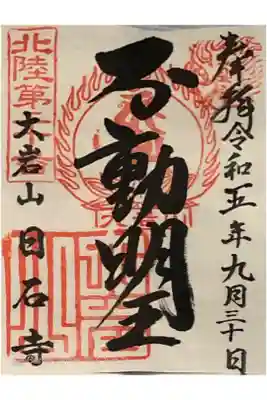 奉拝令和五年九月三十日
不動明王
北陸第
大岩山日石寺